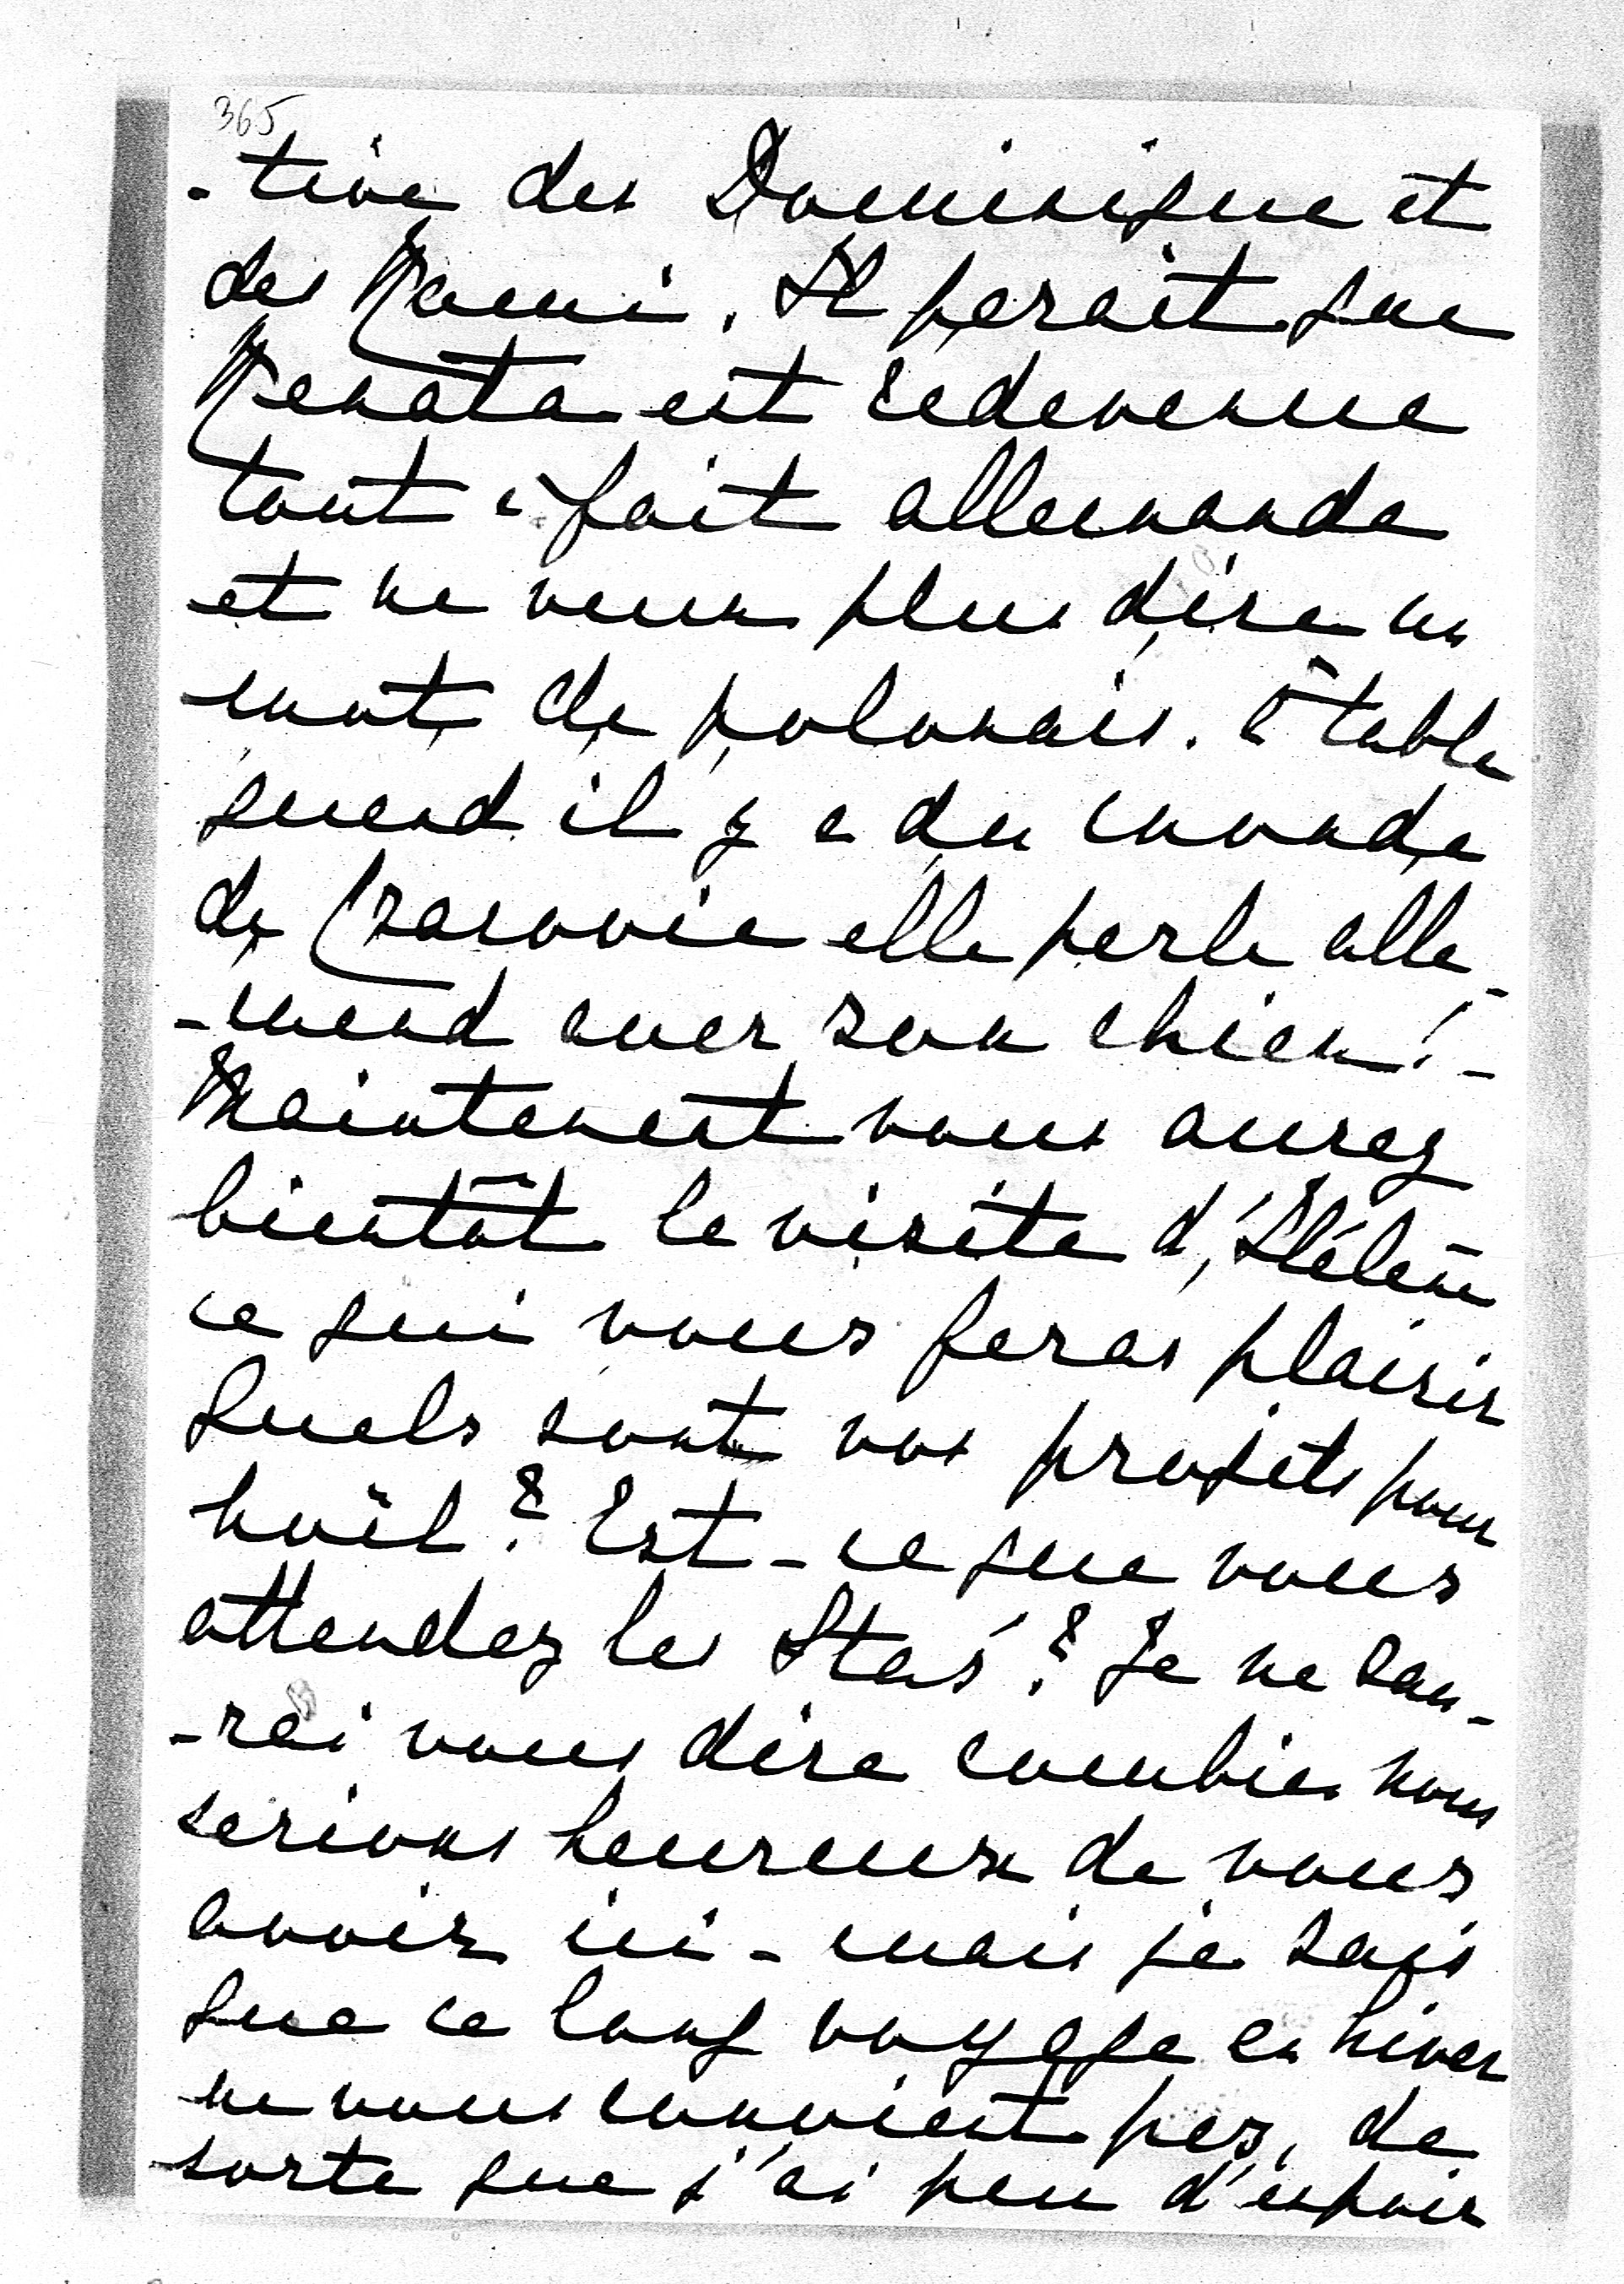 365
-tive des Dominique et
des Remi. Il parait que
Renata est redevenue
tout à fait allemande
et ne veux plus dire un
mot de polonais. à table
quand il y a du monde
de Cracovie elle parle alle-
-mand avec son chien! -
Maintenant vous aurez
bientôt la visite d'Hélène
ce qui vous feras plaisir
Quels sont vos projets pour
noël? Est-ce que vous
attendez les Staś? Je ne sau-
-rai vous dire combien nous
serions heureux de vous
avoir ici - mais je sais
que ce long voyage en hiver
ne vous convient pas, de
sorte que j'ai peu d'espoir